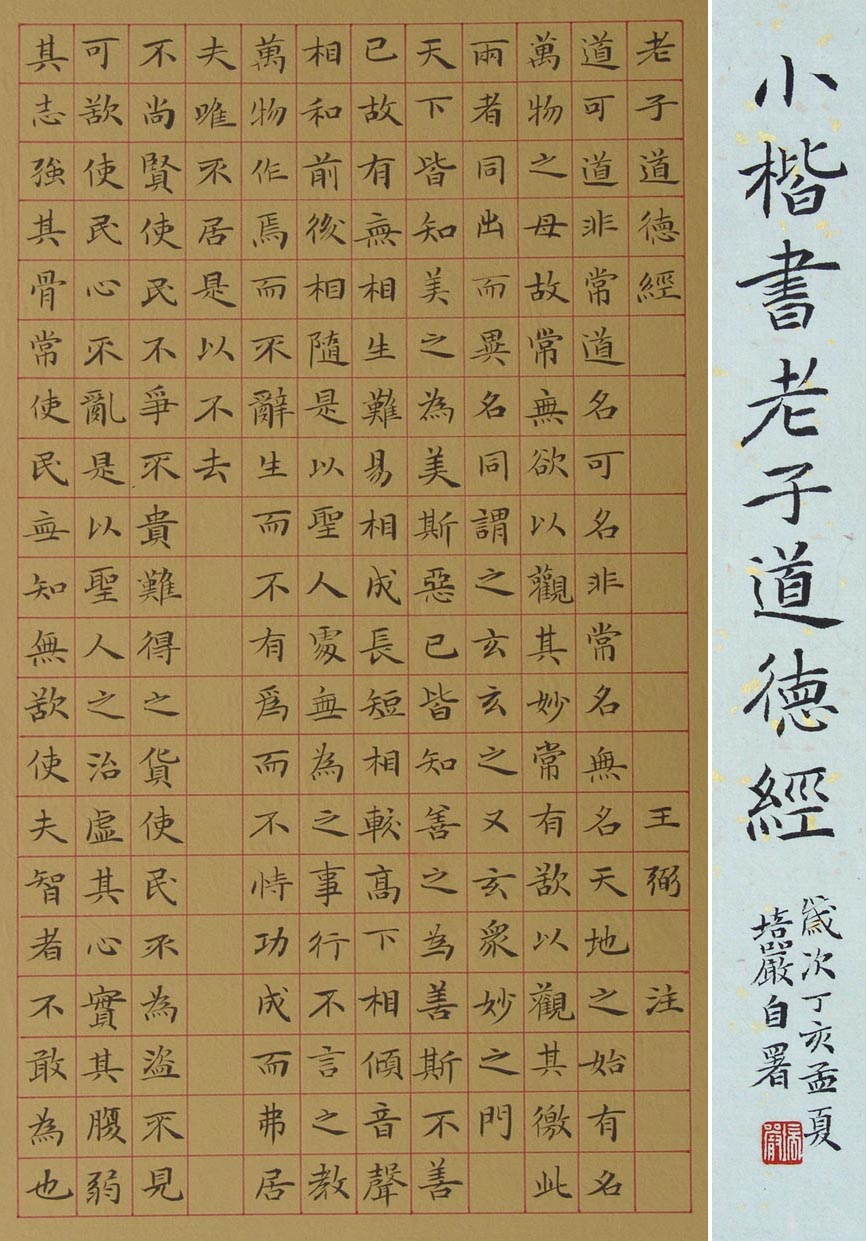 小楷書老子道德經
歲次丁亥孟夏
培嚴自署
老子道德經 王弼 注
道可道非常道名可名非常名無名天地之始有名
萬物之母故常無欲以觀其妙常有欲以觀其徼此
兩者同出而異名同謂之玄玄之又玄眾妙之門
天下皆知美之為美斯惡已皆知善之為善斯不善
已故有無相生難易相成長短相較高下相傾音聲
相和前後相隨是以聖人處無為之事行不言之教
萬物作焉而不辭生而不有爲而不恃功成而弗居
夫唯不居是以不去
不尚賢使民不爭不貴難得之貨使民不為盜不見
可欲使民心不亂是以聖人之治虛其心實其腹弱
其志強其骨常使民無知無欲使夫智者不敢為也